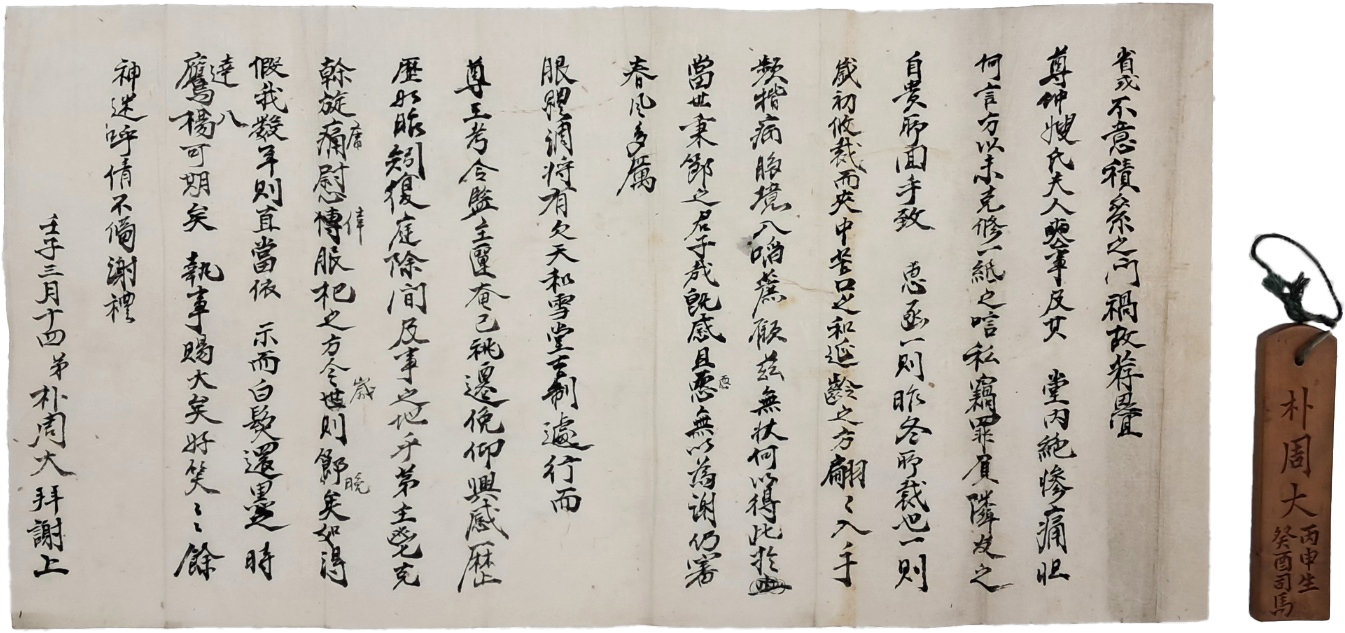 省式不意積殃之門禍故荐疊
尊仲嫂氏夫人喪事及其 堂內絶慘痛怛
何言方以未克修一紙之唁私竊罪負隣友之
自貴所回手致 惠函一則昨冬所裁也一則
歲初攸裁而夾中苦口之和延齡之方翩〻入手
頻惱病膓境入蹈薦顧玆無狀何以得此於
當世秉節之君子哉旣感且恧無以爲謝仍審
春風多厲
服體調將有欠天和雪堂古制遽行而
尊王考令監主匶奄已祧遷俛仰興感一齊上
歷如昨矧復庭除間及事之地乎弟主鬯克
幹旋痛慰博服杞之方今世則節矣如得
假我數年則直當依 示而白髮還黑之時
達八
鷹揚可期矣 執事賜大矣好笑〻餘
神迷呼倩不備謝禮
壬子三月十四弟朴周大拜謝上
朴周大
丙申生
癸酉司馬